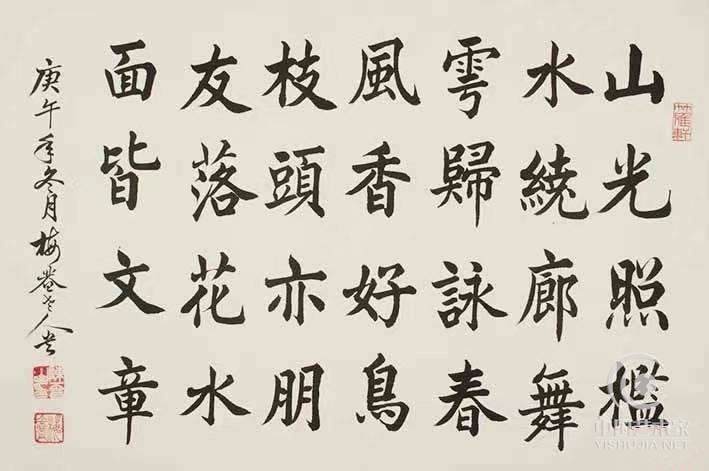 山光照檻
水繞廊舞
雩歸詠春
風香好鳥
枝頭亦朋
友落花水
面皆文章
庚午年冬月梅菴老人
中国艺术家
YISHUJIA.NET